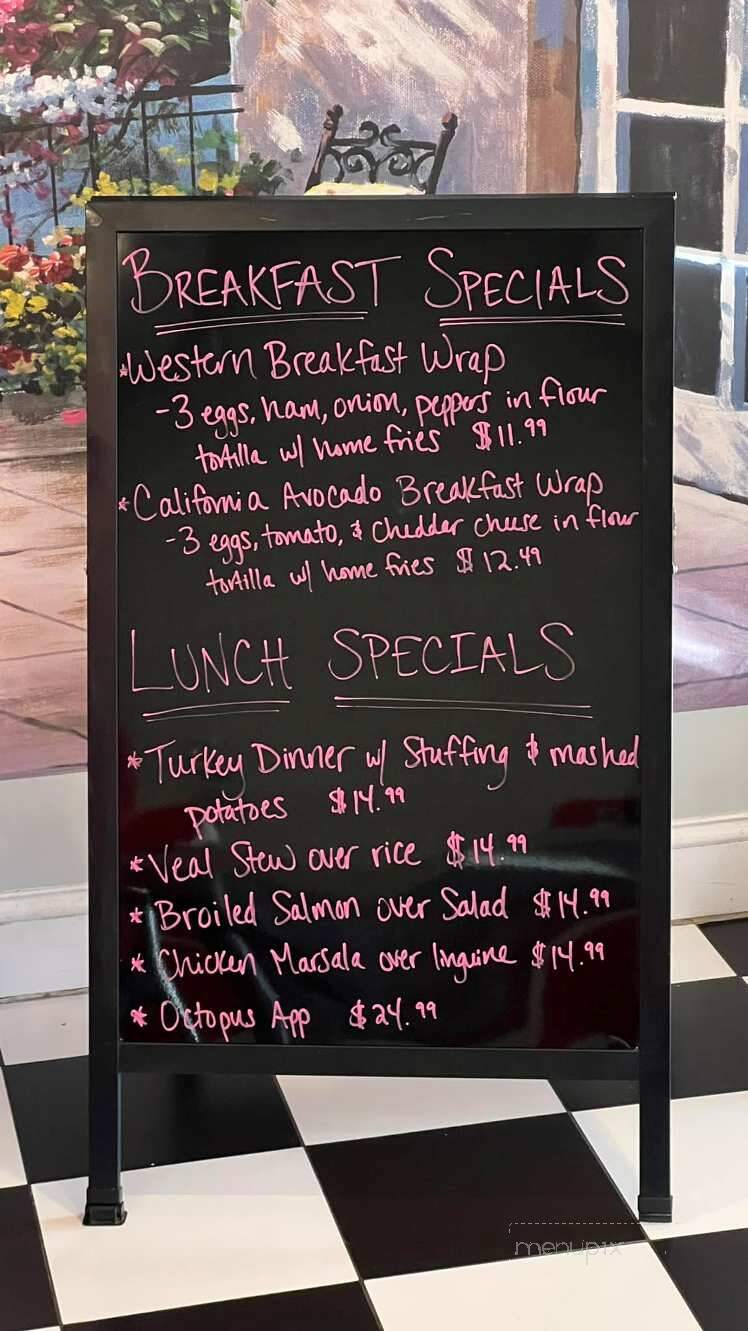 BREAKFAST SPECIALS
*Western Breakfast Wrap
-3 eggs, ham, onion, peppers in flour
tortilla w/ home fries $11.99
*California Avocado Breakfast Wrap
-3 eggs, tomato, & Chedder cheese in flour
tortilla w/ home fries $12.49
LUNCH SPECIALS
*Turkey Dinner w/ Stuffing & mashed
potatoes $14.99
*Veal Stew over rice $14.99
*Broiled Salmon over Salad $14.99
*Chicken Marsala over linguine $14.99
*Octopus App $24.99
menupix